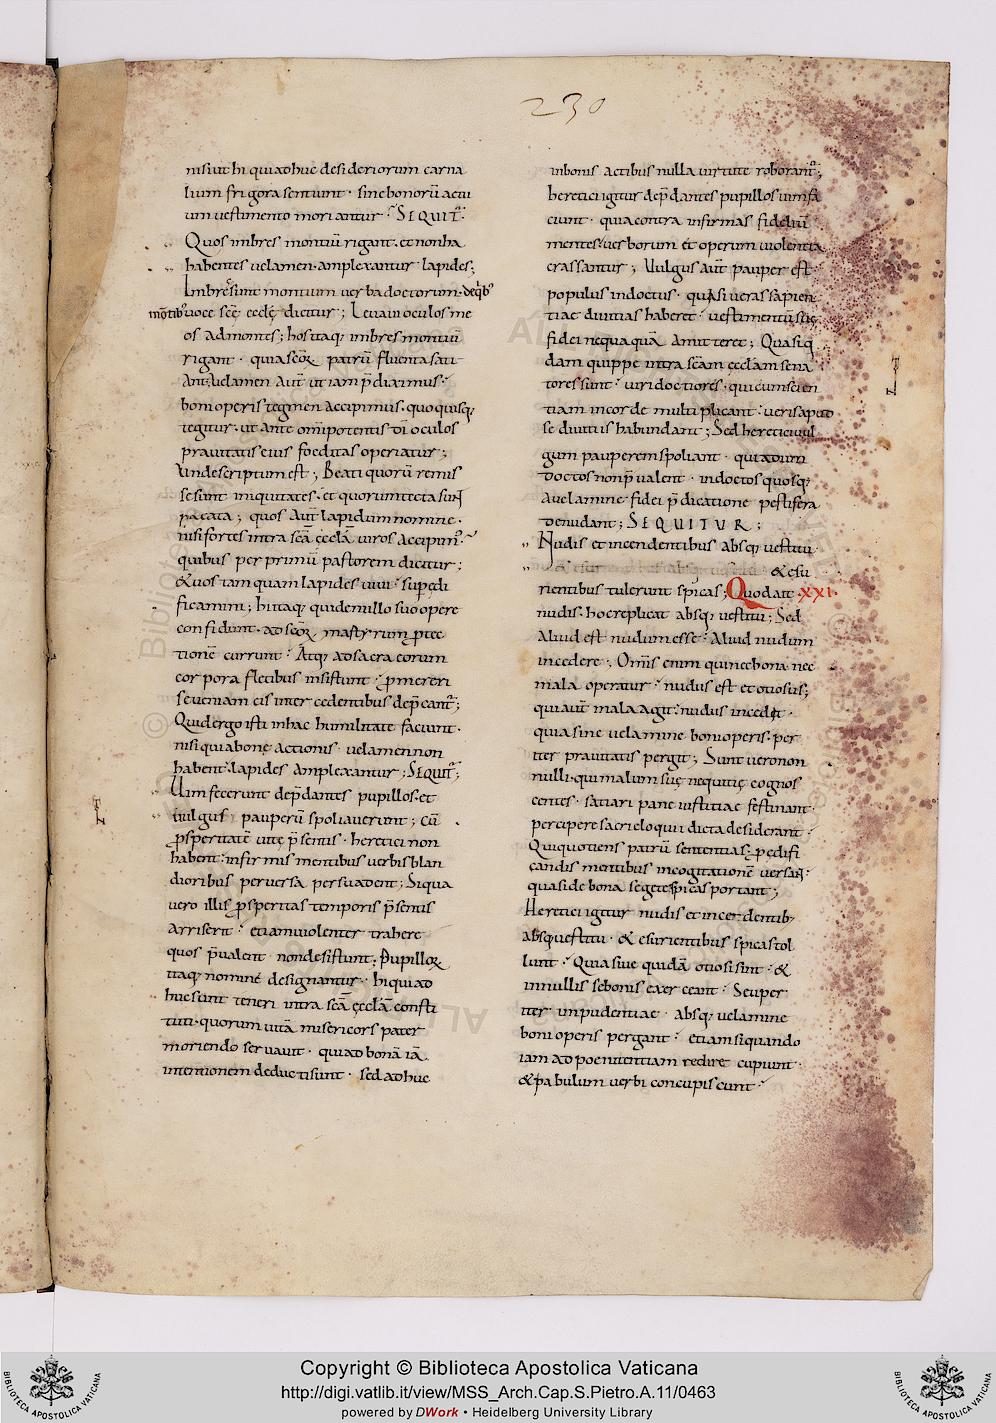 230
nisi ut hi qui adhuc desideriorum carna
lium frigora sentiunt · sine bonorū actu
um vestimento moriantur · SEQUIT̃.
Quos imbres montiū rigant · et non ha
bentes uelamen · amplexantur lapides;
Imbres sunt montium uerba doctorum · de q̄b'
mōtib' uoce scę ecclę dicitur ; Leuaui oculos me
os ad montes ; hos itaq; imbres montiū
rigant · quia scōꝝ patrū fluenta sati
ant; uelamen aut̄ ut iam p̄diximus ·
boni operis tegmen accipimus · quo quisq;
tegitur · ut ante om̄ipotentis dī oculos
prauitatis eius foeditas operiatur ;
Unde scriptum est ; Beati quorū remis
se sunt iniquitates · et quorum tecta sun̄
pacata ; quos aut̄ lapidum nomine ·
nisi fortes intra scā ęcclā uiros accipim';
quibus per primū pastorem dicitur ;
& uos tamquam lapides uiui · supędi
ficamini ; hi itaq; qui de nullo suo opere
confidunt · ad scōꝝ martyrum ꝓtec
tionē currunt · Atq; ad sacra eorum
corpora fletibus insistunt · ꝓmereri
se ueniam eis intercedentibus dep̄cant̃;
Quid ergo isti in hac humilitate faciunt ·
nisi quia bonę actionis · uelamen non
habent · lapides amplexantur ; SEQUIT̃;
Uim fecerunt dep̄dantes pupillos · et
uulgus pauperū spoliauerunt ; Cū
ꝓsperitatē uitę p̄sentis · heretici non
habent · infirmis mentibus uerbis blan
dioribus peruersa persuadent ; Si qua
uero illis ꝓsperitas temporis p̄sentis
arriserit · etiam uiolenter trahere
quos p̄ualent non desistunt; Pupilloꝝ
itaq; nominē designantur · hi qui ad
huc sunt teneri intra scā ęcclā consti
tuti · quorum uitā misericors pater
moriendo seruauit · qui ad bonā iā
intentionem deducti sunt · sed adhuc
in bonis actibus nulla uirtute roborant̃;
heretici igitur dep̄dantes pupillos uim fa
ciunt · quia contra infirmas fideliū
mentes uerborum et operum uiolentia
crassantur ; Uulgus aut̄ pauper est
populus indoctus · qui si ueras sapien
tiae diuitias haberet · uestimentū suę
fidei nequaquā amitteret ; Quasi q̄
dam quippe intra scām ęcclam sena
tores sunt · uiri doctiores · qui cum scien
tiam in corde multiplicant · ueris apud
se diuitiis habundant ; Sed heretici uul
gum pauperem spoliant · quia dum
doctos non p̄ualent · indoctos quosq;
a uelamine fidei p̄dicatione pestifera
denudant ; SEQUITUR ;
Nudis et incendentibus absq; uestitu
& esu
rientibus tulerunt spicas; Quod ait XXI
nudis · hoc replicat absq; uestitu ; Sed
Aliud est nudum esse · Aliud nudum
incedere ; Om̄is enim qui nec bona nec
mala operatur · nudus est et otiosus;
qui aut̄ mala agit · nudus incedit ·
quia sine uelamine boni operis · per
iter prauitatis pergit ; Sunt uero non
nulli · qui malum suę nequitię cognos
centes · satiari pane iustitiae festinant ·
percipere sacri eloquii dicta desiderant ·
Qui quotiens patrū sententias · ꝓ ędifi
candis mentibus in cogitationē uersan̄·
quasi de bona segete spicas portant ;
Heretici igitur nudis et incedentib;
absq; uestitu · & esurientibus spicas tol
lunt · Quia siue quidā otiosi sint · &
in nullis se bonis exerceant · Seu per
iter inpudentiae · absq; uelamine
boni operis pergant · etiam si quando
iam ad poenitentiam redire cupiunt ·
& pabulum uerbi concupiscunt ·
© Biblioteca Apostolica Vaticana
Copyright © Biblioteca Apostolica Vaticana
http://digi.vatlib.it/view/MSS_Arch.Cap.S.Pietro.A.11/0463
powered by DWork • Heidelberg University Library
BIBLIOTECA APOSTOLICA VATICANA
BIBLIOTECA APOSTOLICA VATICANA